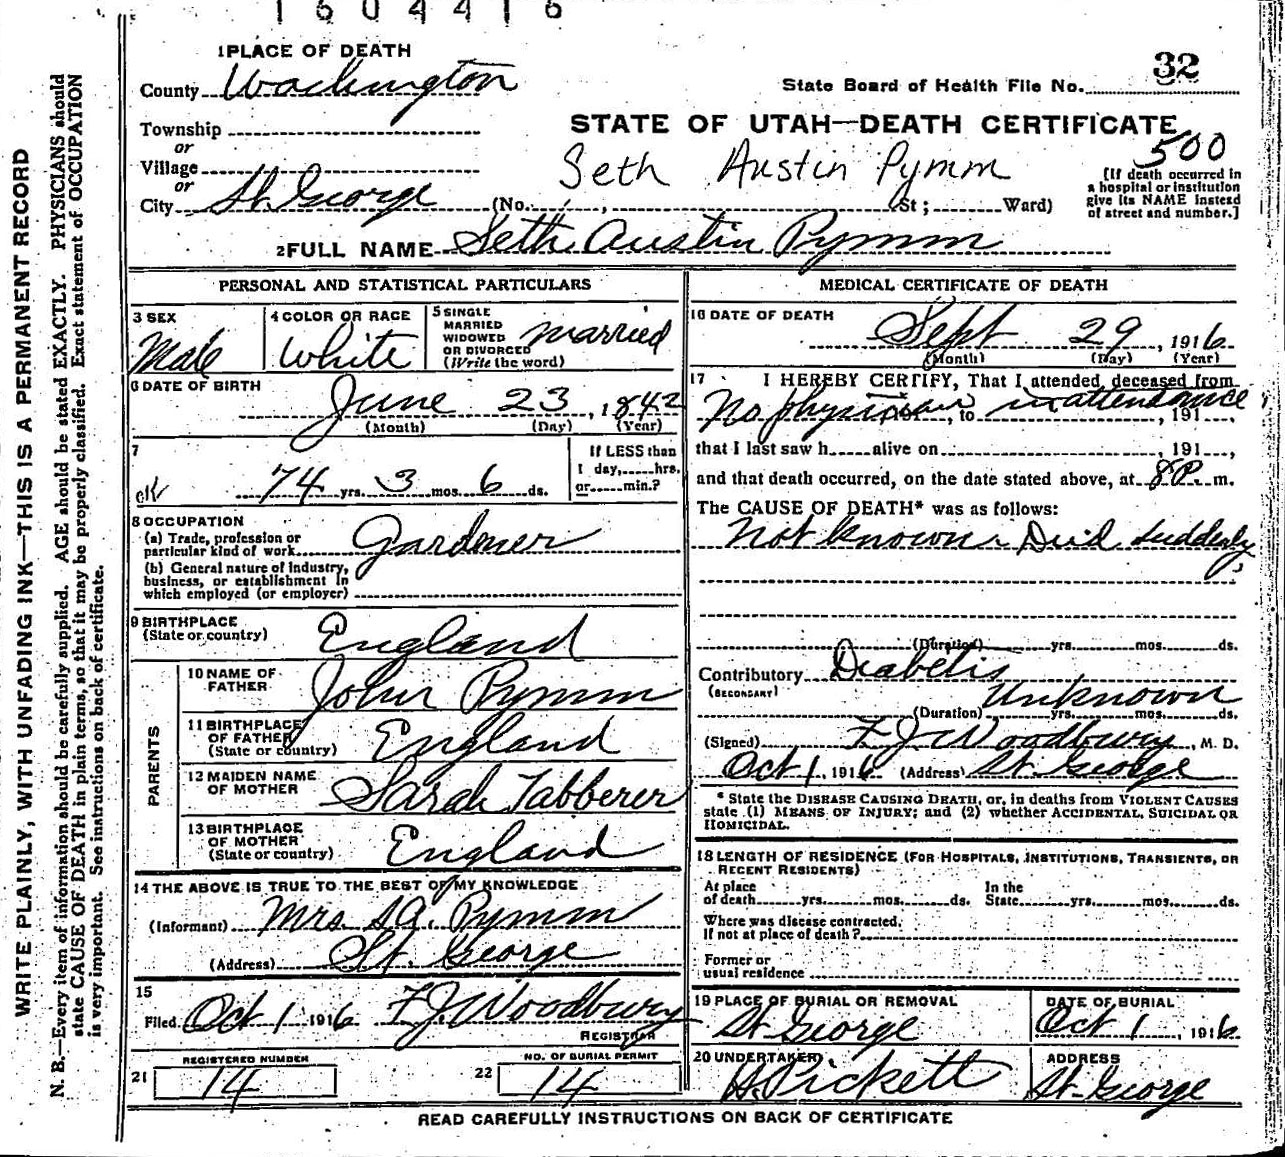 1604416
1 PLACE OF DEATH
County Washington
State Board of Health File No. 32
Township
or
Village
or
City St. George (No. , St; Ward)
STATE OF UTAH—DEATH CERTIFICATE
Seth Austin Pymm
500
[If death occurred in
a hospital or institution
give its NAME instead
of street and number.]
2 FULL NAME Seth Austin Pymm
PERSONAL AND STATISTICAL PARTICULARS
3 SEX
Male
4 COLOR OR RACE
White
5 SINGLE
MARRIED
WIDOWED
OR DIVORCED
(Write the word)
married
6 DATE OF BIRTH
June 23, 1842
(Month) (Day) (Year)
7
ok
74 yrs. 3 mos. 6 ds.
If LESS than
1 day, hrs.
or min.?
8 OCCUPATION
(a) Trade, profession or
particular kind of work Gardner
(b) General nature of industry,
business, or establishment in
which employed (or employer)
9 BIRTHPLACE
(State or country) England
PARENTS
10 NAME OF
FATHER John Pymm
11 BIRTHPLACE
OF FATHER
(State or country) England
12 MAIDEN NAME
OF MOTHER Sarah Tabberer
13 BIRTHPLACE
OF MOTHER
(State or country) England
14 THE ABOVE IS TRUE TO THE BEST OF MY KNOWLEDGE
(Informant) Mrs. SA. Pymm
(Address) St. George
15
Filed Oct 1 1916 F J Woodbury
REGISTRAR
REGISTERED NUMBER
21 14
NO. OF BURIAL PERMIT
22 14
MEDICAL CERTIFICATE OF DEATH
16 DATE OF DEATH
Sept 29, 1916
(Month) (Day) (Year)
17 I HEREBY CERTIFY, That I attended deceased from
No physician, to in attendance, 191
that I last saw h alive on , 191 ,
and that death occurred, on the date stated above, at 8 P. m.
The CAUSE OF DEATH* was as follows:
Not known Died suddenly
(Duration) yrs. mos. ds.
Contributory Diabetis
(SECONDARY)
Unknown
(Duration) yrs. mos. ds.
(Signed) F J Woodbury, M. D.
Oct 1, 1916 (Address) St. George
* State the DISEASE CAUSING DEATH, or, in deaths from VIOLENT CAUSES
state (1) MEANS OF INJURY; and (2) whether ACCIDENTAL, SUICIDAL OR
HOMICIDAL.
18 LENGTH OF RESIDENCE (FOR HOSPITALS, INSTITUTIONS, TRANSIENTS, OR
RECENT RESIDENTS)
At place
of death yrs. mos. ds.
In the
State yrs. mos. ds.
Where was disease contracted.
If not at place of death?
Former or
usual residence
19 PLACE OF BURIAL OR REMOVAL
St George
DATE OF BURIAL
Oct 1, 1916
20 UNDERTAKER
Pickett
ADDRESS
St. George
READ CAREFULLY INSTRUCTIONS ON BACK OF CERTIFICATE
WRITE PLAINLY, WITH UNFADING INK—THIS IS A PERMANENT RECORD
N. B.—Every item of information should be carefully supplied. AGE should be stated EXACTLY. PHYSICIANS should
state CAUSE OF DEATH in plain terms, so that it may be properly classified. Exact statement of OCCUPATION
is very important. See instructions on back of certificate.